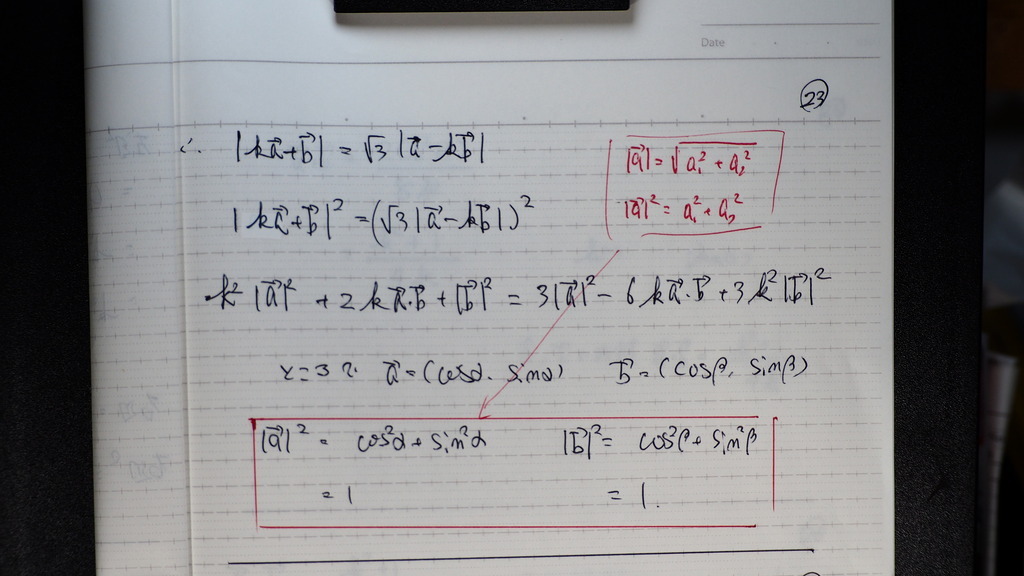 Date
23
∴ |ka⃗+b⃗| = √3 |a⃗-kb⃗|
|a⃗| = √a₁² + a₂²
|a⃗|² = a₁² + a₂²
|ka⃗+b⃗|² = (√3 |a⃗-kb⃗|)²
k² |a⃗|² + 2ka⃗·b⃗ + |b⃗|² = 3|a⃗|² - 6ka⃗·b⃗ + 3k²|b⃗|²
ここで a⃗ = (cosα, sinα) b⃗ = (cosβ, sinβ)
|a⃗|² = cos²α + sin²α |b⃗|² = cos²β + sin²β
= 1 = 1.